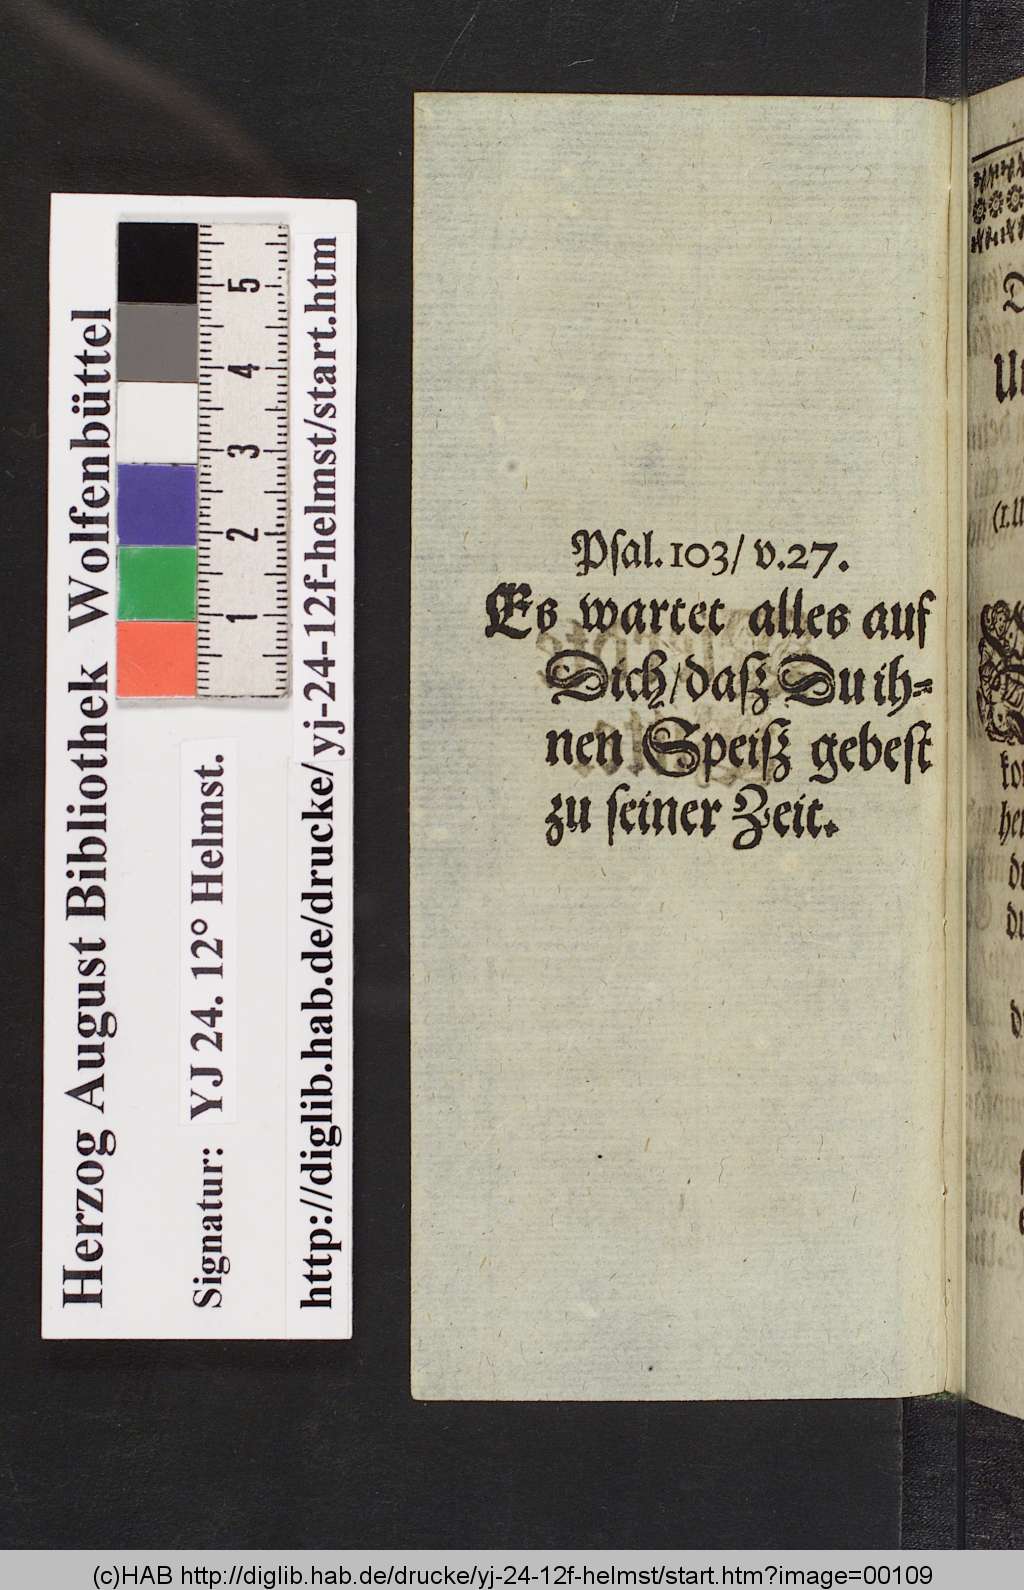 Herzog August Bibliothek Wolfenbüttel
Signatur: YJ 24. 12° Helmst.
http://diglib.hab.de/drucke/yj-24-12f-helmst/start.htm
5
4
3
2
1
Psal. 103/ v. 27.
Es wartet alles auf
Dich/ daß Du ih=
nen Speiß gebest
zu seiner Zeit.
(c)HAB http://diglib.hab.de/drucke/yj-24-12f-helmst/start.htm?image=00109